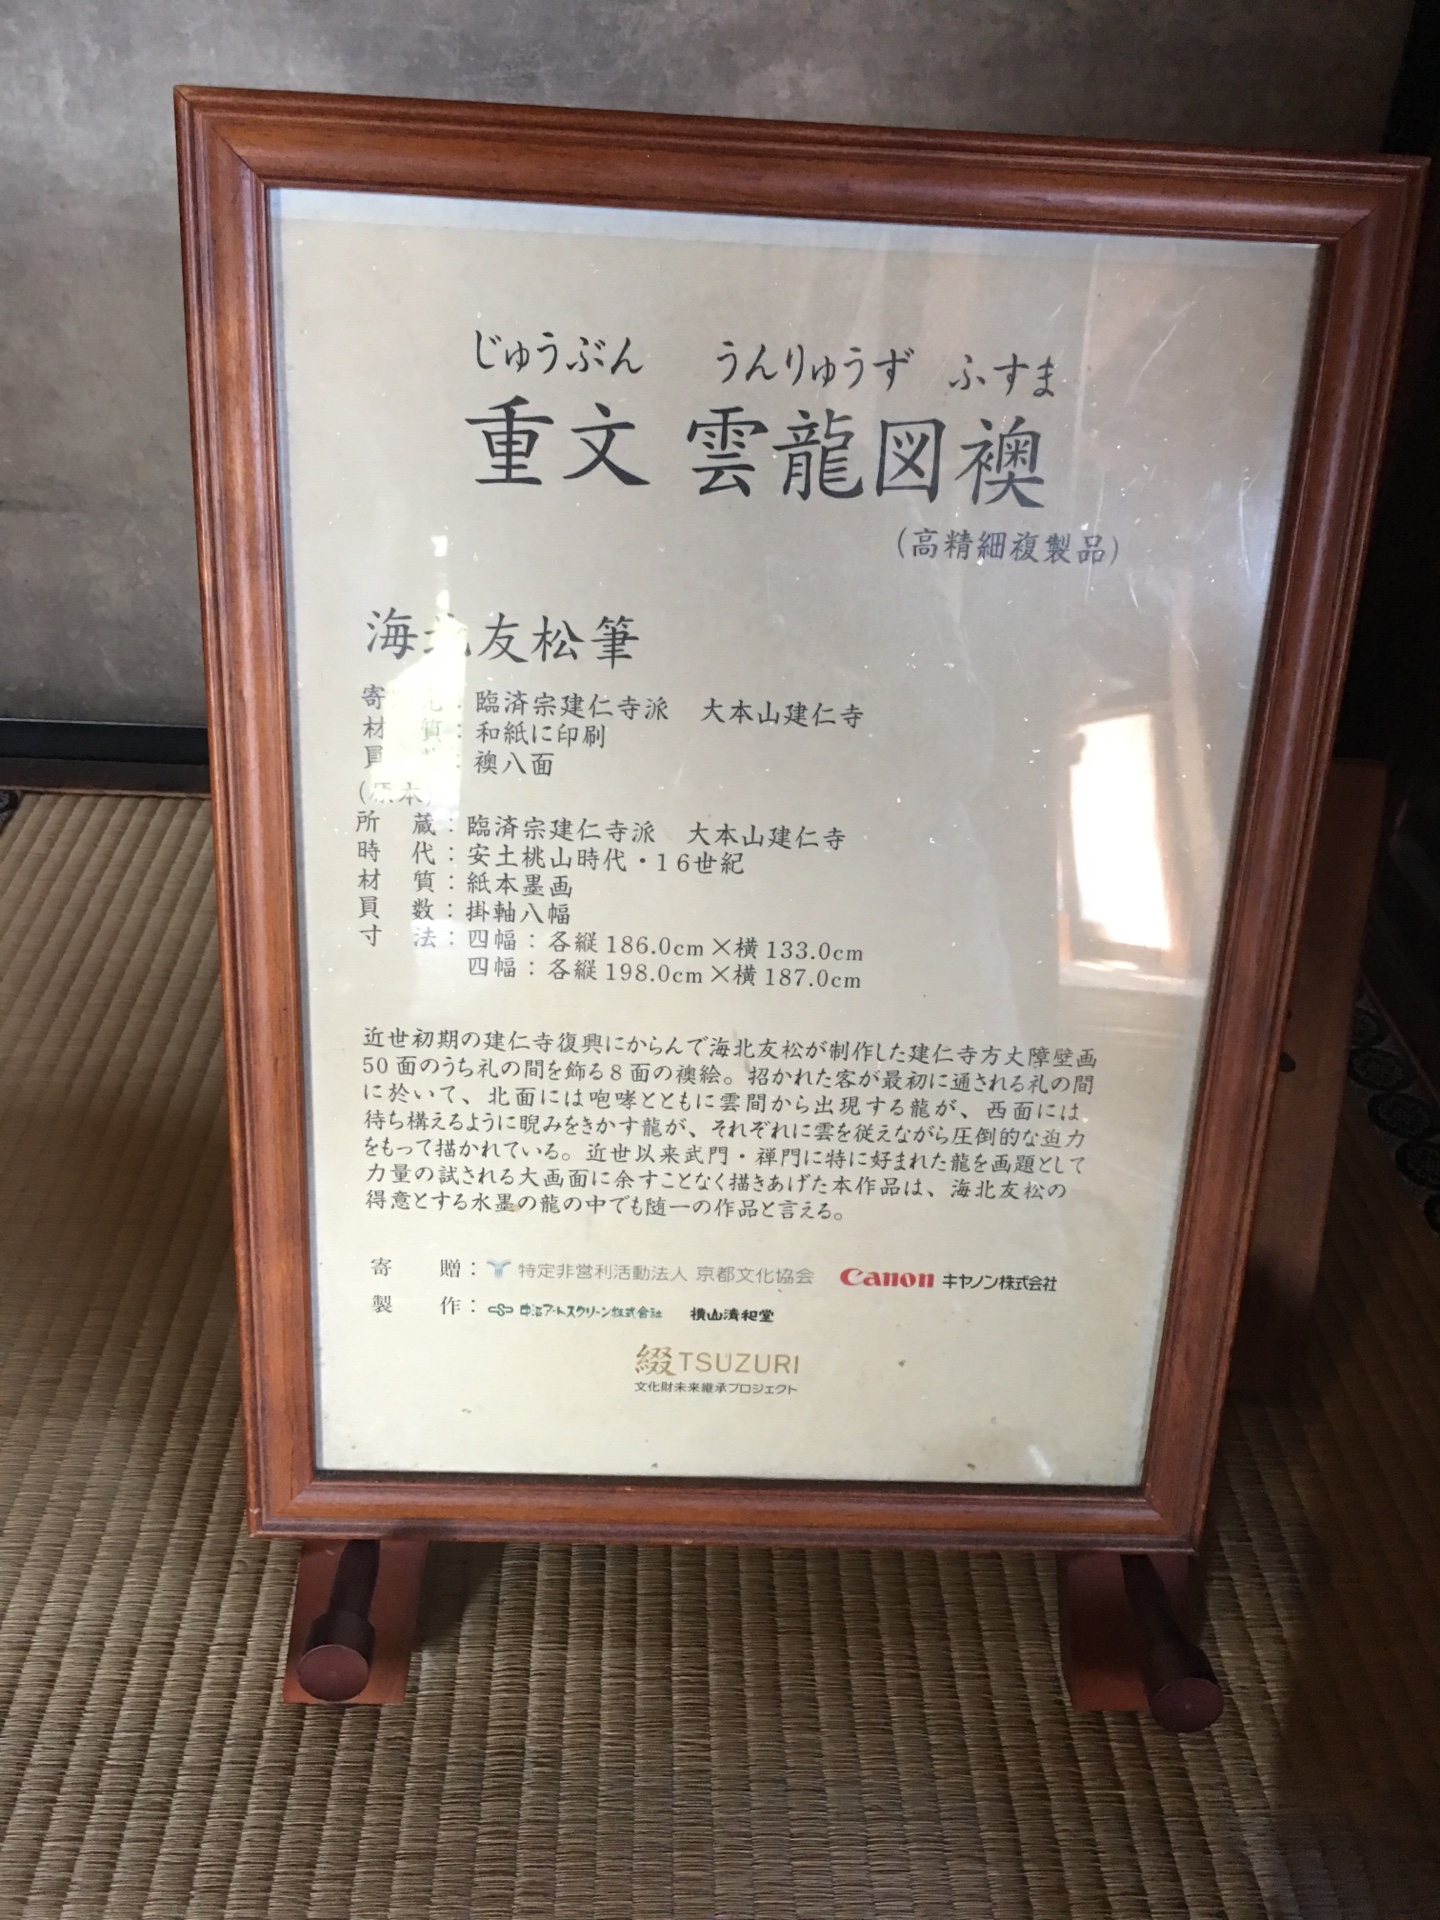 じゅうぶん うんりゅうず ふすま
重文 雲龍図襖
(高精細複製品)
海北友松筆
寄 先：臨済宗建仁寺派 大本山建仁寺
材 質：和紙に印刷
員 ：襖八面
(原本)
所 蔵：臨済宗建仁寺派 大本山建仁寺
時 代：安土桃山時代・16世紀
材 質：紙本墨画
員 数：掛軸八幅
寸 法：四幅：各縦186.0cm×横133.0cm
四幅：各縦198.0cm×横187.0cm
近世初期の建仁寺復興にからんで海北友松が制作した建仁寺方丈障壁画
50面のうち礼の間を飾る8面の襖絵。招かれた客が最初に通される礼の間
に於いて、北面には咆哮とともに雲間から出現する龍が、西面には
待ち構えるように睨みをきかす龍が、それぞれに雲を従えながら圧倒的な迫力
をもって描かれている。近世以来武門・禅門に特に好まれた龍を画題として
力量の試される大画面に余すことなく描きあげた本作品は、海北友松の
得意とする水墨の龍の中でも随一の作品と言える。
寄 贈：特定非営利活動法人 京都文化協会 Canon キヤノン株式会社
製 作：中沼アートスクリーン株式会社 横山清和堂
綴TSUZURI
文化財未来継承プロジェクト